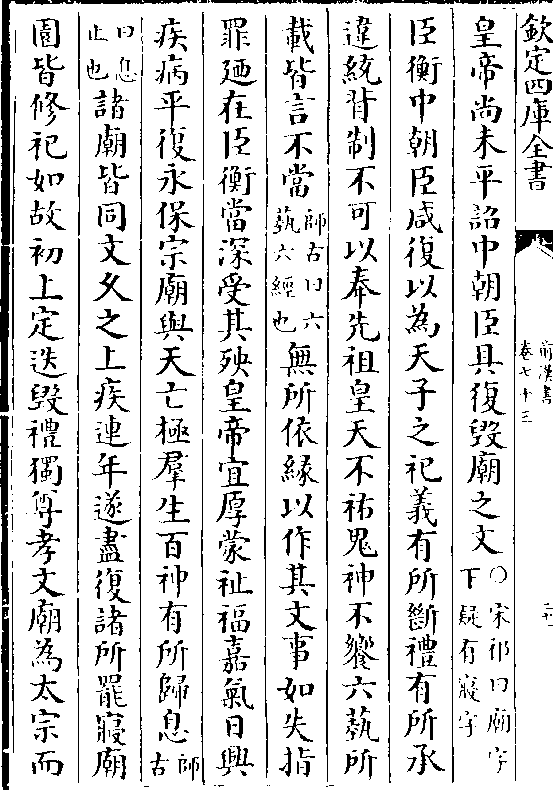 欽定四庫全書
前漢書
卷七十三
皇帝尚未平詔中朝臣具復毀廟之文○宋祁曰廟字
下疑有寢字
臣衡中朝臣咸復以為天子之祀義有所斷禮有所承
違統背制不可以奉先祖皇天不祐鬼神不饗六藝所
載皆言不當師古曰六
藝六經也無所依緣以作其文事如失指
罪廼在臣衡當深受其殃皇帝宜厚蒙祉福嘉氣日興
疾病平復永保宗廟與天亡極羣生百神有所歸息師
古
曰息
止也諸廟皆同文久之上疾連年遂盡復諸所罷寢廟
園皆修祀如故初上定迭毀禮獨尊孝文廟為太宗而